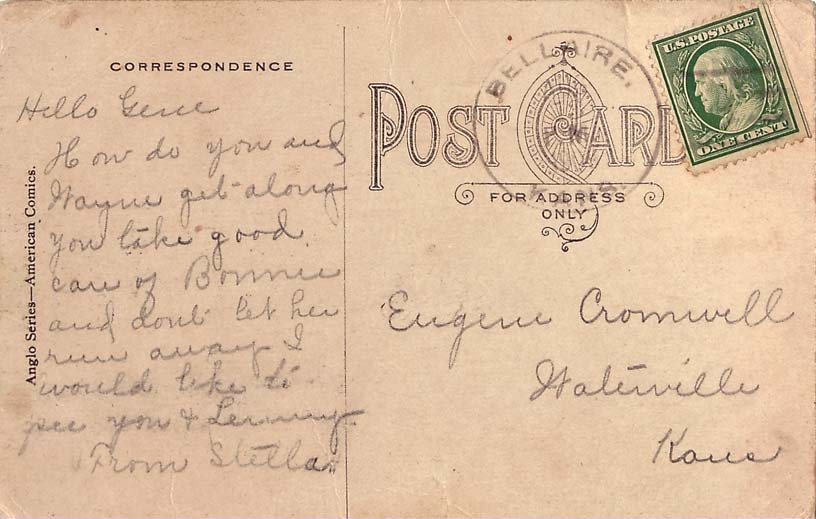 CORRESPONDENCE
Hello Gene
How do you and
Wayne get along
you take good
care of Bonnie
and dont let her
run away I
would like to
see you &
From Stella
Anglo Series—American Comics.
POST CARD
FOR ADDRESS
ONLY
BELLAIRE,
KANS.
U.S. POSTAGE
ONE CENT
Eugene Cromwell
Waterville
Kans